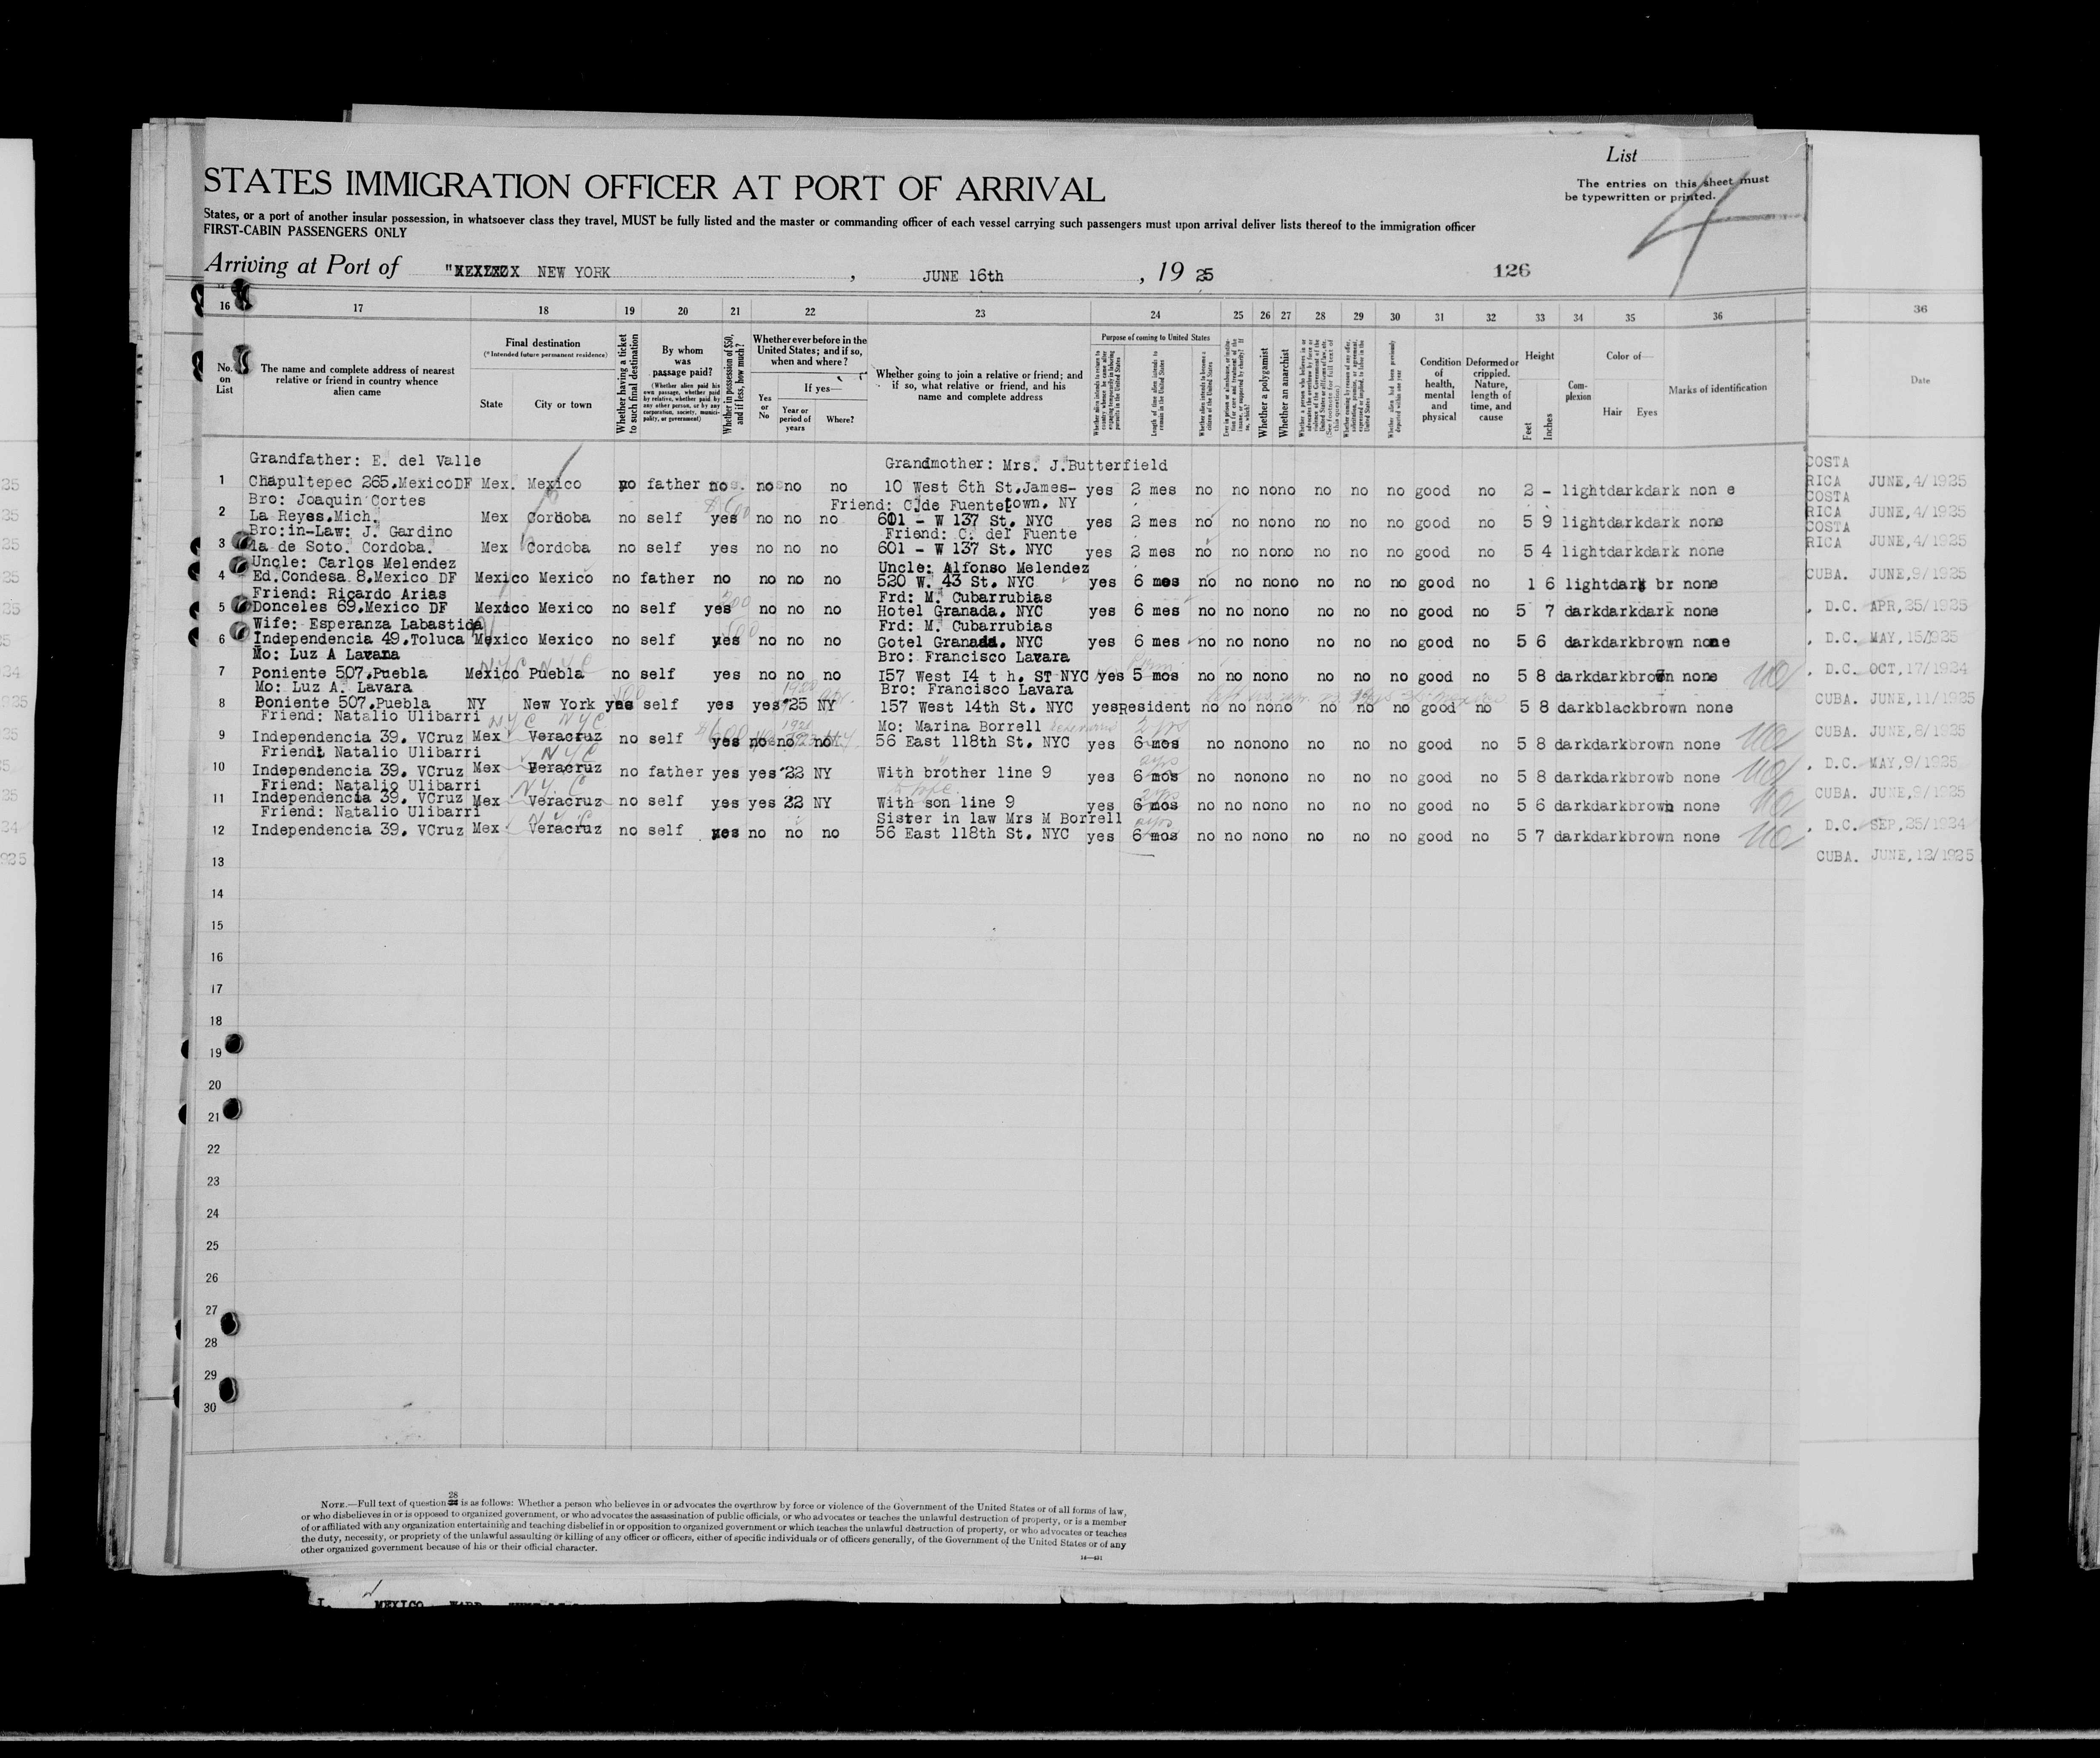 List
STATES IMMIGRATION OFFICER AT PORT OF ARRIVAL
The entries on this sheet must
be typewritten or printed.
4
States, or a port of another insular possession, in whatsoever class they travel, MUST be fully listed and the master or commanding officer of each vessel carrying such passengers must upon arrival deliver lists thereof to the immigration officer
FIRST-CABIN PASSENGERS ONLY
Arriving at Port of NEW YORK , JUNE 16th , 19 25
126
16 17 18 19 20 21 22 23 24 25 26 27 28 29 30 31 32 33 34 35 36
No. on List
The name and complete address of nearest relative or friend in country whence alien came
Final destination
(*Intended future permanent residence)
State City or town
Whether having a ticket to such final destination
By whom was passage paid?
(Whether alien paid his own passage, whether paid by relative, whether paid by any other person, or by any corporation, society, municipality, or government)
Whether in possession of $50, and if less, how much?
Whether ever before in the United States; and if so, when and where?
If yes—
Yes or No
Year or period of years
Where?
Whether going to join a relative or friend; and if so, what relative or friend, and his name and complete address
Purpose of coming to United States
Length of time alien intends to remain in the United States
Whether a polygamist
Whether an anarchist
Condition of health, mental and physical
Deformed or crippled. Nature, length of time, and cause
Height
Feet Inches
Complexion
Color of—
Hair Eyes
Marks of identification
36
Date
Grandfather: E. del Valle Grandmother: Mrs. J.Butterfield
1 Chapultepec 265.MexicoDF Mex. Mexico no father no no no no 10 West 6th St.James- yes 2 mes no no nono no no no good no 2 - lightdarkdark non e
Bro: Joaquin Cortes Friend: C.de Fuente town. NY
2 La Reyes.Mich. Mex Cordoba no self yes no no no 601 - W 137 St. NYC yes 2 mes no no nono no no no good no 5 9 lightdarkdark none
Bro:in-Law: J. Gardino Friend: C. del Fuente
3 la de Soto. Cordoba. Mex Cordoba no self yes no no no 601 - W 137 St. NYC yes 2 mes no no nono no no no good no 5 4 lightdarkdark none
Uncle: Carlos Melendez Uncle: Alfonso Melendez
4 Ed.Condesa 8.Mexico DF Mexico Mexico no father no no no no 520 W. 43 St. NYC yes 6 mes no no nono no no no good no 1 6 lightdark br none
Friend: Ricardo Arias Frd: M. Cubarrubias
5 Donceles 69.Mexico DF Mexico Mexico no self yes no no no Hotel Granada. NYC yes 6 mes no no nono no no no good no 5 7 darkdarkdark none
Wife: Esperanza Labastida Frd: M. Cubarrubias
6 Independencia 49.Toluca Mexico Mexico no self yes no no no Gotel Granada. NYC yes 6 mes no no nono no no no good no 5 6 darkdarkbrown none
Mo: Luz A Lavara Bro: Francisco Lavara
7 Poniente 507.Puebla Mexico Puebla no self yes no no no 157 West I4 t h. ST NYC yes 5 mos no no nono no no no good no 5 8 darkdarkbrown none
Mo: Luz A. Lavara Bro: Francisco Lavara
8 Poniente 507.Puebla NY New York yes self yes yes '25 NY 157 West 14th St. NYC yesResident no no nono no no no good no 5 8 darkblackbrown none
Friend: Natalio Ulibarri NYC NYC Mo: Marina Borrell
9 Independencia 39. VCruz Mex Veracruz no self yes no no no 56 East 118th St. NYC yes 6 mos no nonono no no no good no 5 8 darkdarkbrown none
Friend: Natalio Ulibarri NYC
10 Independencia 39. VCruz Mex Veracruz no father yes yes '22 NY With brother line 9 yes 6 mos no nonono no no no good no 5 8 darkdarkbrowb none
Friend: Natalio Ulibarri
11 Independencia 39. VCruz Mex Veracruz no self yes yes 22 NY With son line 9 yes 6 mos no no nono no no no good no 5 6 darkdarkbrown none
Friend: Natalio Ulibarri Sister in law Mrs M Borrell
12 Independencia 39. VCruz Mex Veracruz no self yes no no no 56 East 118th St. NYC yes 6 mos no no nono no no no good no 5 7 darkdarkbrown none
13
14
15
16
17
18
19
20
21
22
23
24
25
26
27
28
29
30
COSTA
RICA JUNE,4/1925
COSTA
RICA JUNE,4/1925
COSTA
RICA JUNE,4/1925
CUBA. JUNE,9/1925
, D.C. APR,25/1925
, D.C. MAY,15/1925
, D.C. OCT,17/1924
CUBA. JUNE,11/1925
CUBA. JUNE,8/1925
, D.C. MAY,9/1925
CUBA. JUNE,9/1925
, D.C. SEP,25/1924
CUBA. JUNE,12/1925
28
NOTE.—Full text of question is as follows: Whether a person who believes in or advocates the overthrow by force or violence of the Government of the United States or of all forms of law,
or who disbelieves in or is opposed to organized government, or who advocates the assassination of public officials, or who advocates or teaches the unlawful destruction of property, or is a member
of or affiliated with any organization entertaining and teaching disbelief in or opposition to organized government or which teaches the unlawful destruction of property, or who advocates or teaches
the duty, necessity, or propriety of the unlawful assaulting or killing of any officer or officers, either of specific individuals or of officers generally, of the Government of the United States or of any
other organized government because of his or their official character.
14—431
MEXICO